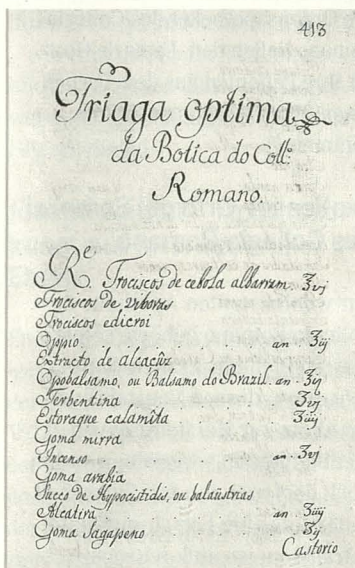 413
Triaga optima
da Botica do Coll.º
Romano.
Re. Trociscos de cebola albarram ʒvj
Trociscos de viboras
Trociscos edicroi
Oppio an ʒiij
Extracto de alcaçûz
Opobalsamo, ou Balsamo do Brazil. an. ʒij
Terbentina ʒvj
Estoraque calamîta ʒiiij
Goma mirra
Incenso an. ʒvj
Goma arabia
Succo de Hypocistidis, ou balaûstrias
Alcatira an ʒiiij
Goma Sagapeno ʒij
Castorio